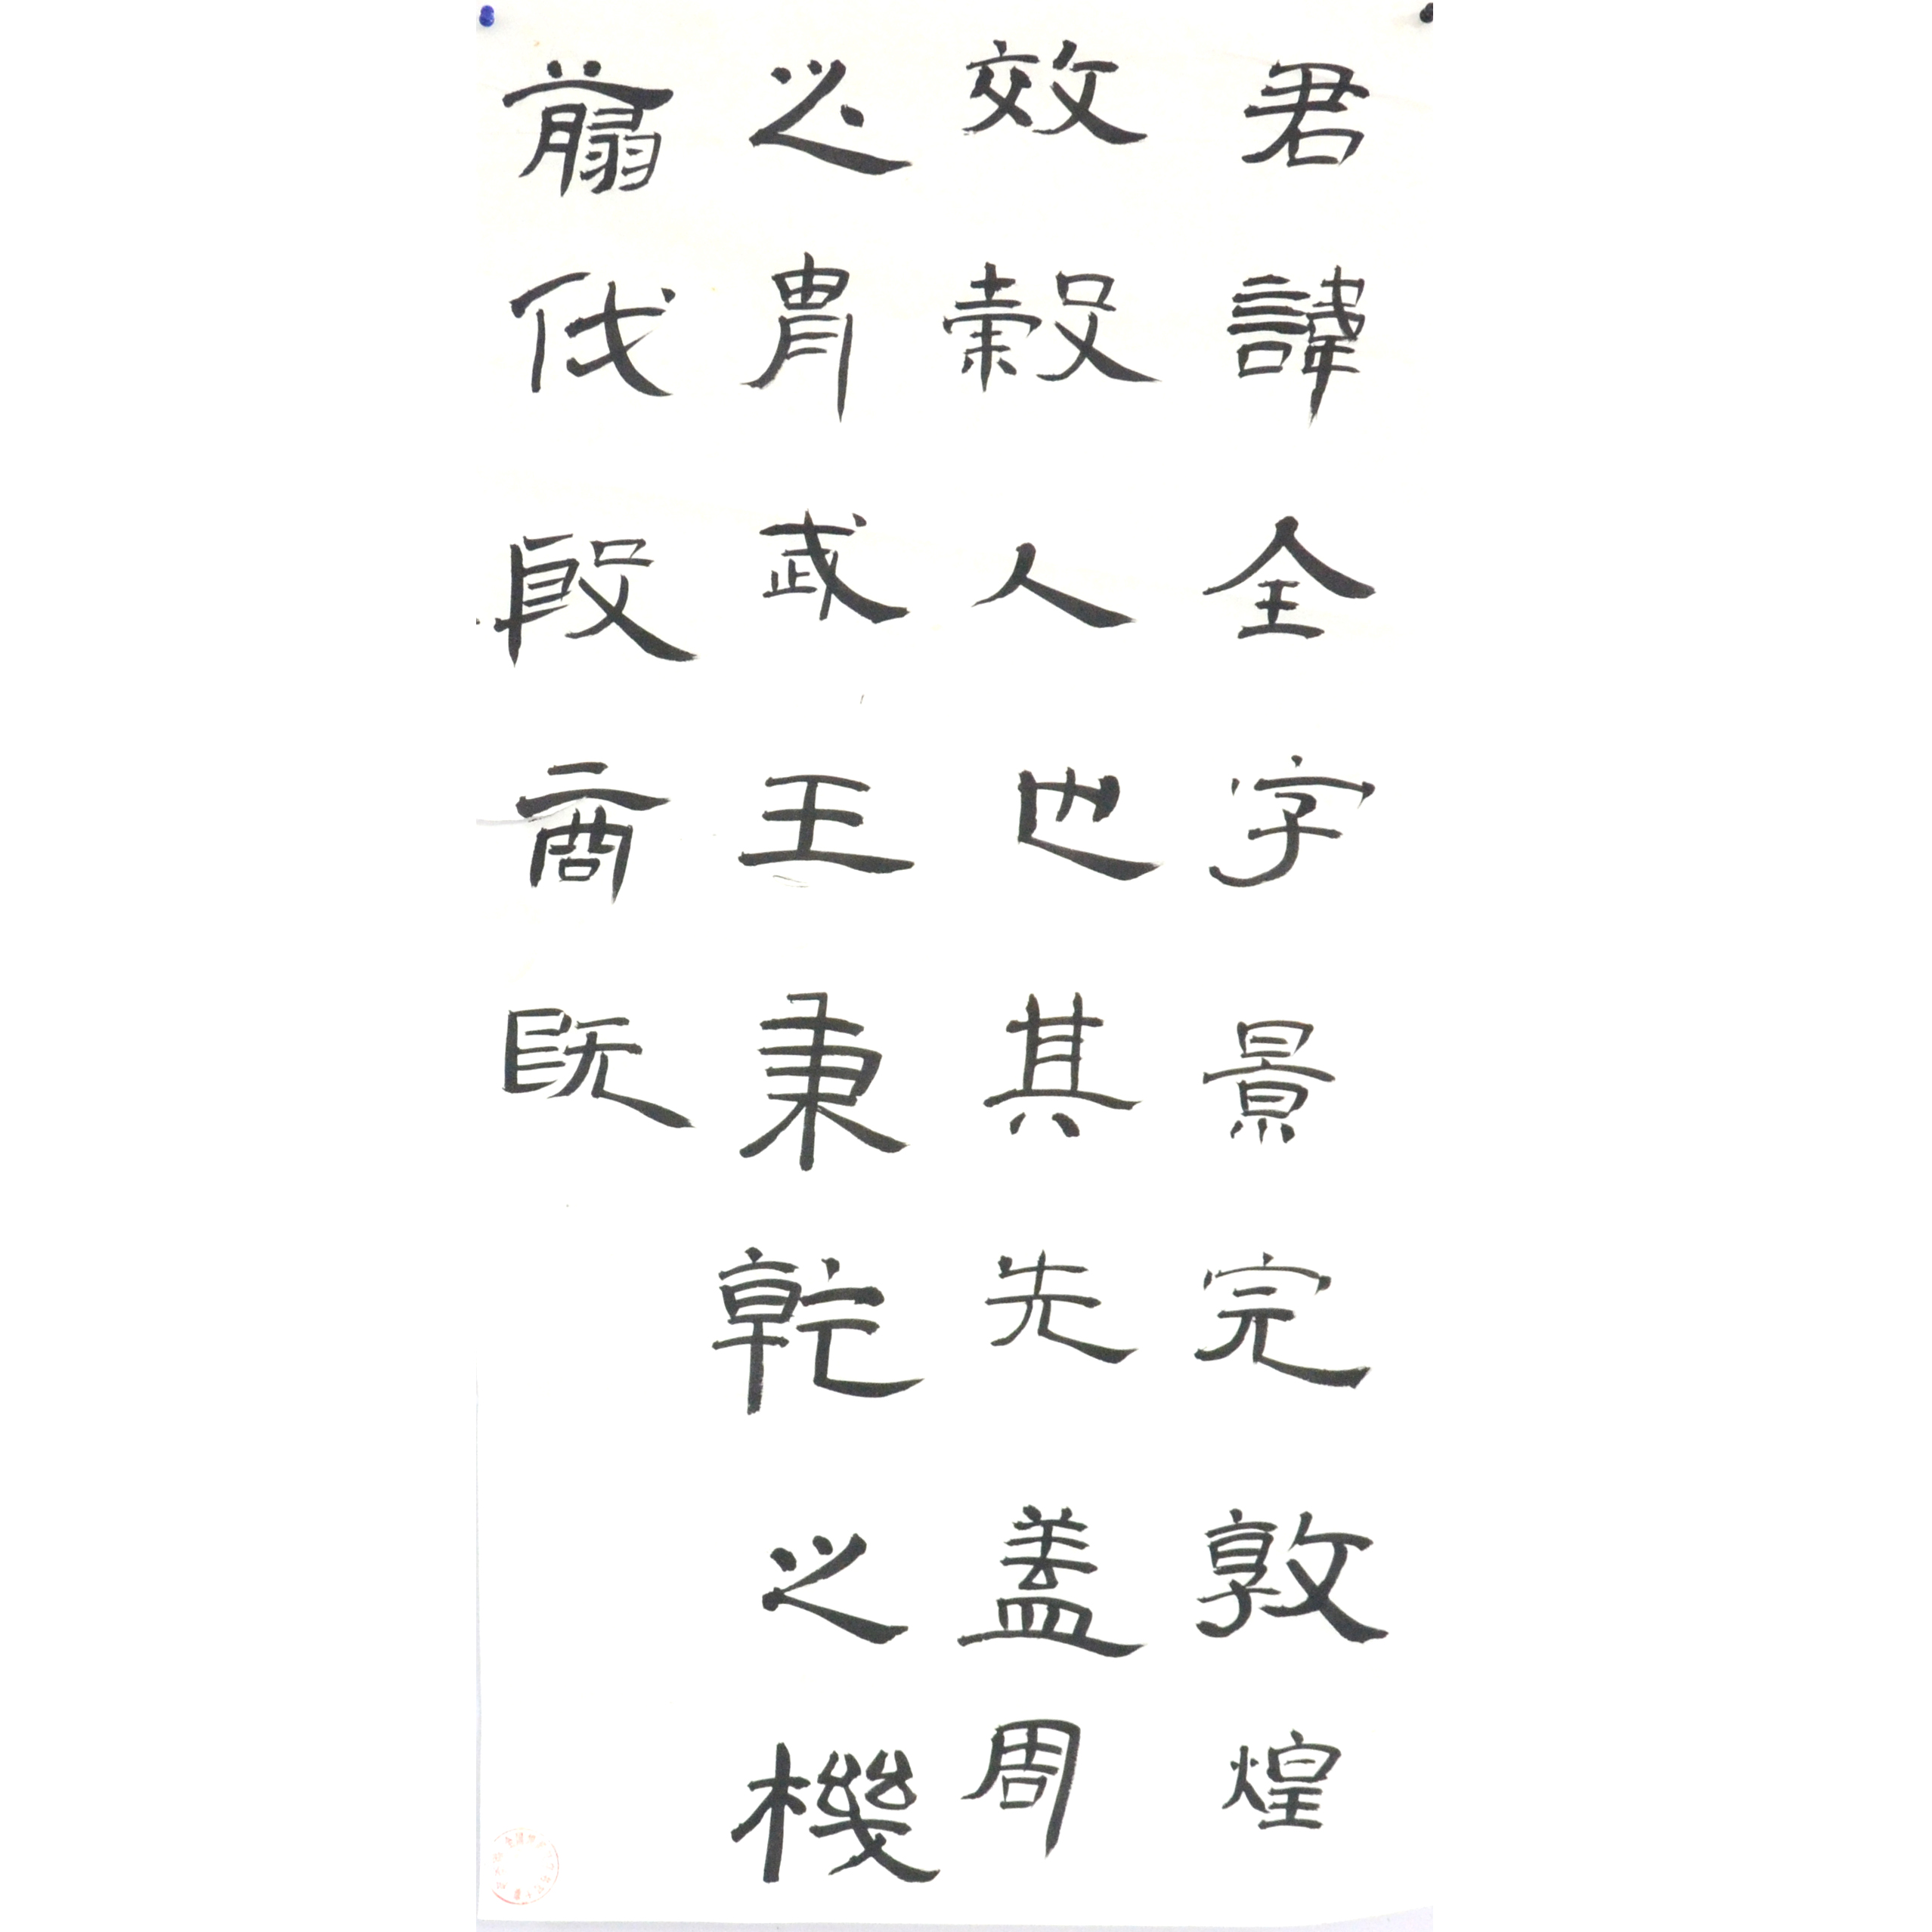 君諱全字景完敦煌
效穀人也其先蓋周
之胄武王秉乾之機
翦伐殷商既